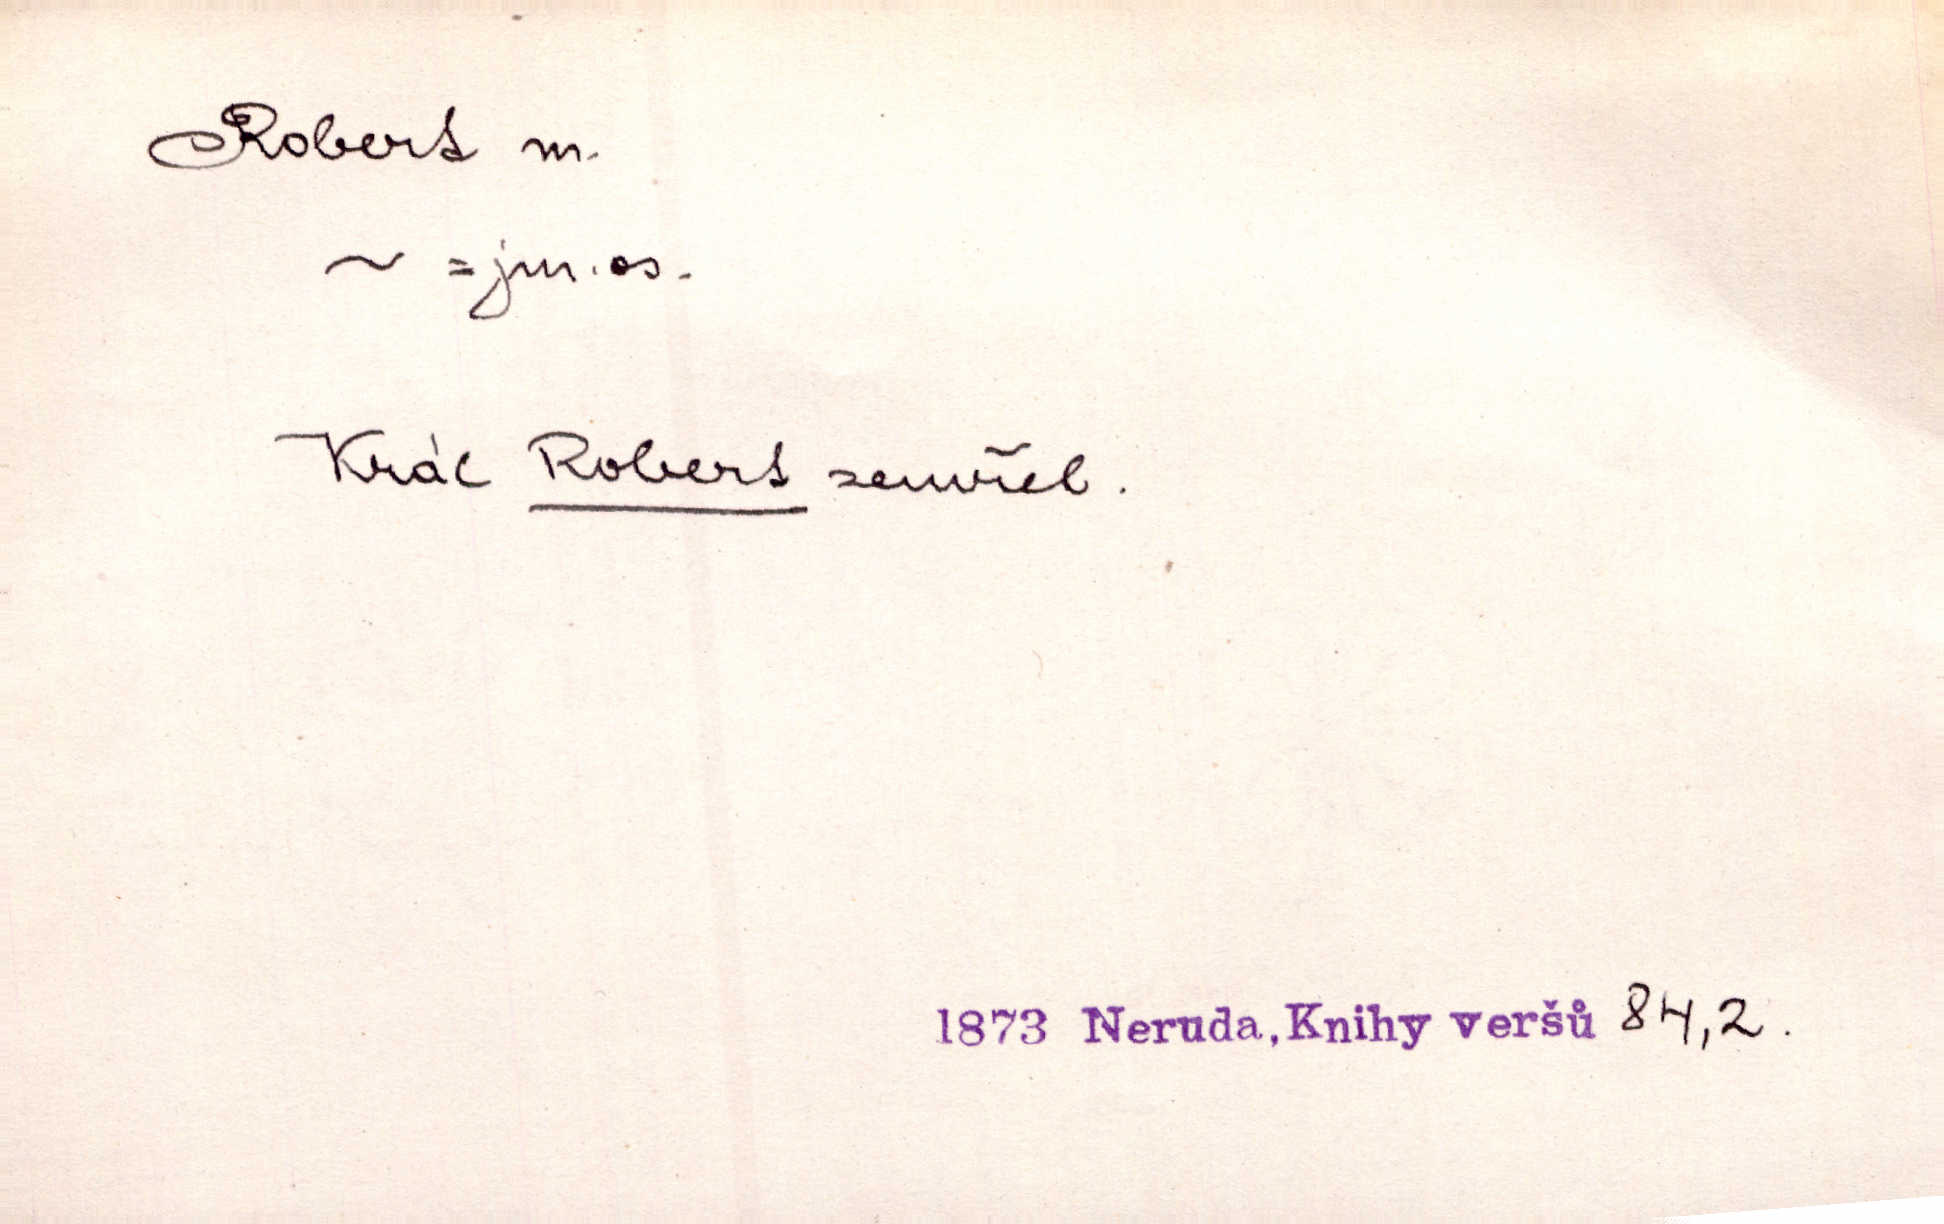 Robert m.
~ = jm. os.
Král Robert zemřel.
1873 Neruda, Knihy veršů 84,2.